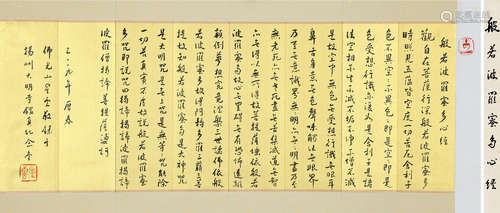 般若波羅蜜多心經
般若波羅蜜多心經
觀自在菩薩行深般若波羅蜜多
時照見五蘊皆空度一切苦厄舍利子
色不異空空不異色色即是空空即是
色受想行識亦復如是舍利子是諸
法空相不生不滅不垢不淨不增不減
是故空中無色無受想行識無眼耳
鼻舌身意無色聲香味觸法無眼界
乃至無意識界無無明亦無無明盡乃至
無老死亦無老死盡無苦集滅道無智
亦無得以無所得故菩提薩埵依般若
波羅蜜多故心無罣礙無罣礙故無有恐怖遠離
顛倒夢想究竟涅槃三世諸佛依般
若波羅蜜多故得阿耨多羅三藐三菩
提故知般若波羅蜜多是大神咒
是大明咒是無上咒是無等等咒能除
一切苦真實不虛故說般若波羅蜜
多咒即說咒曰揭諦揭諦波羅揭諦
波羅僧揭諦菩提薩婆訶
佛光山星雲
揚州大明寺鑑真紀念